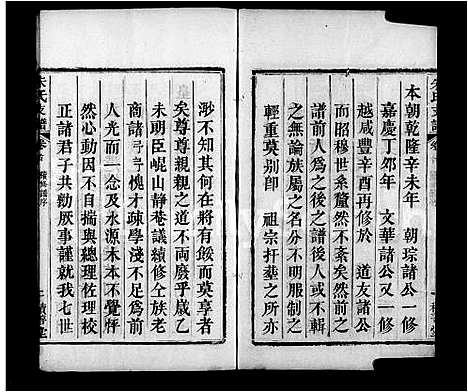 本朝乾隆辛未年　朝琮諸公一修
嘉慶丁卯年　文華諸公又一修
越咸豐辛酉再修於　道友諸公
而昭穆世系釐然不紊矣然前之
譜前人爲之後之譜後人或不輯
之無論族屬之名分不明服制之
輕重莫别即　祖宗扞墓之所亦
渺不知其何在將有餒而莫享者
矣尊尊親親之道不兩廢乎歲乙
未明臣峴山靜菴議續修仝族老
商諸兮兮槐才疎學淺不足為前
人光而一念及水源木本不覺怦
然心動因不自揣與總理佐理校
正諸君子共勷厥事謹就我七世
朱氏支譜
卷首
續修譜序